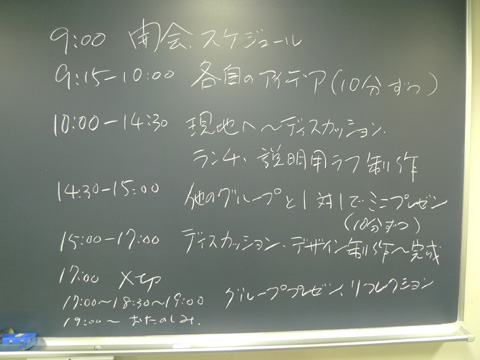 9:00 開会.スケジュール
9:15-10:00 各自のアイデア(10分ずつ)
10:00-14:30 現地へ~ディスカッション
ランチ、説明用ラフ制作
14:30-15:00 他のグループと1対1でミニプレゼン
(10分ずつ)
15:00-17:00 ディスカッション、デザイン制作~完成
17:00 〆切
17:00~18:30~19:00 グループプレゼン、リフレクション
19:00~ おたのしみ.